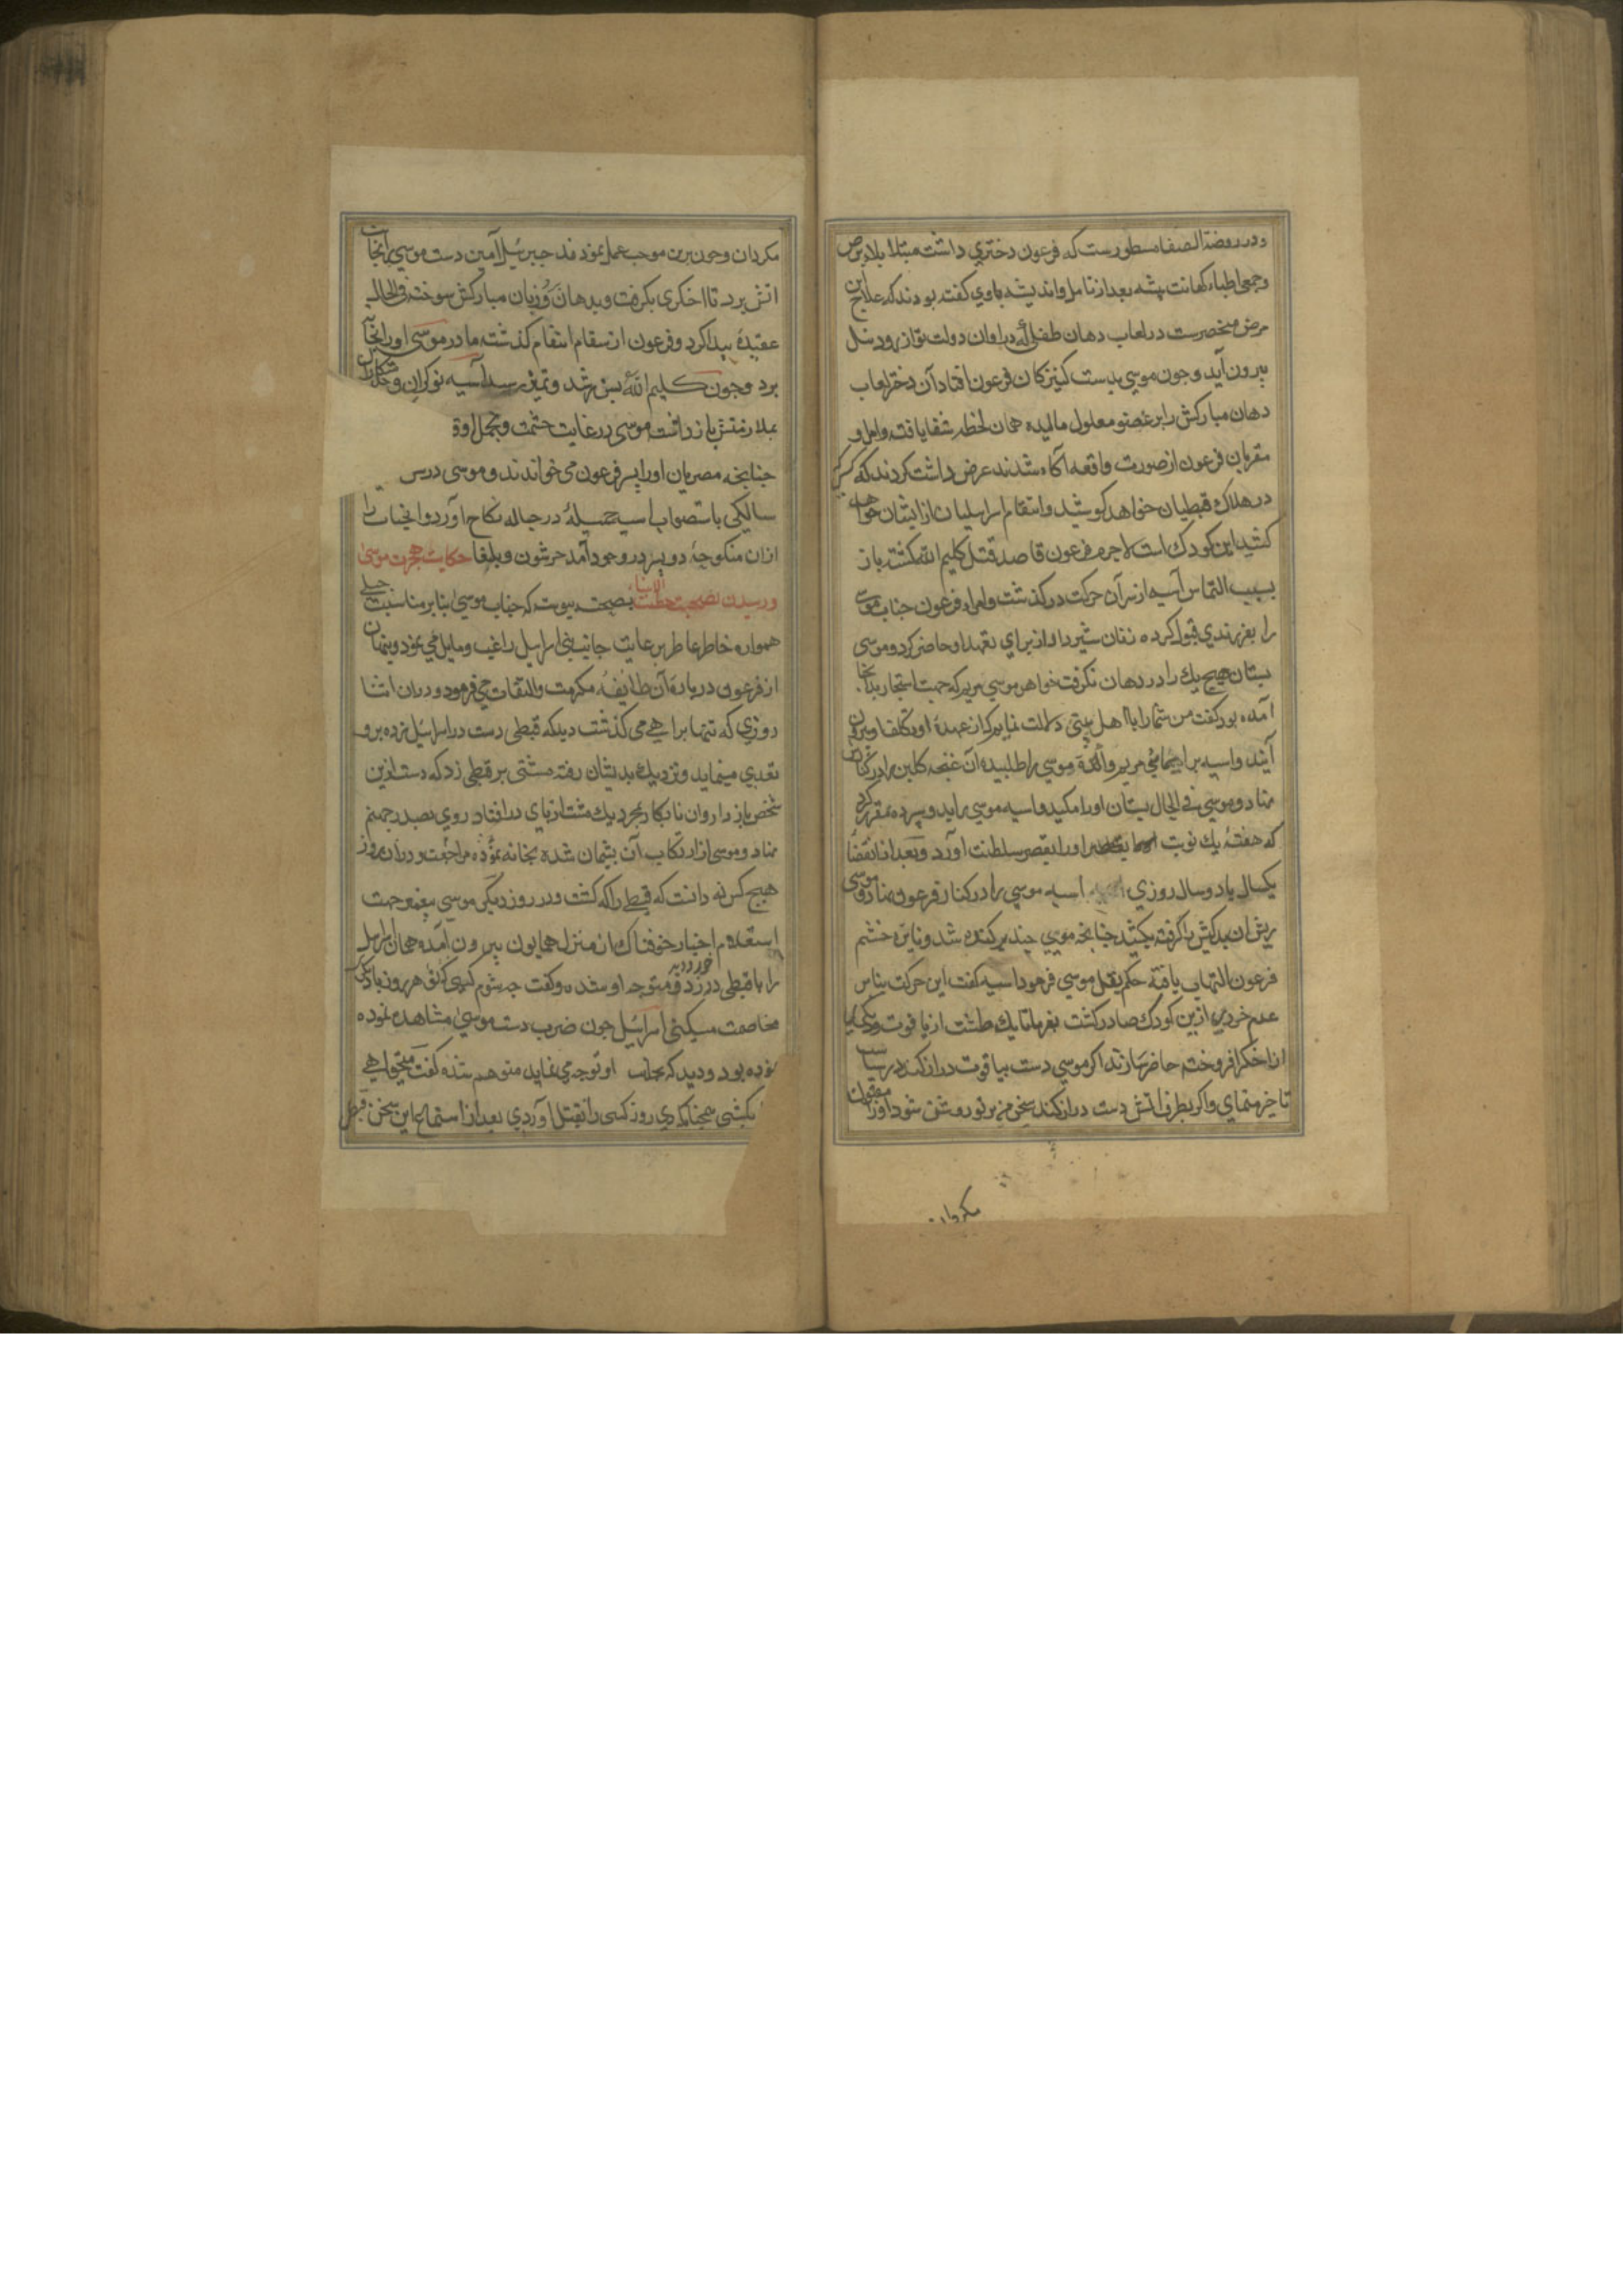 و در روضة الصفا مسطورست که فرعون دختری داشت مبتلا ببلاء برص
و جمعی اطباء کهانت پیشه بعد از تامل و اندیشه باوی کفته بودند که علاج این
مرض منحصرست در لعاب دهان طفلی که در اوان دولت تو از رود نیل
بیرون آید و چون موسی بدست کنیزکان فرعون افتاد آن دختر لعاب
دهان مبارکش را بر عضو معلول مالیده همان لحظه شفا یافت و اهل و
مقربان فرعون از صورت واقعه آکاه شدند عرض داشت کردند که کسی که
در هلاک قبطیان خواهد کوشید و انتقام اسرایلیان از ایشان خواهد
کشید این کودک است لاجرم فرعون قاصد قتل کلیم الله کشته باز
بسبب التماس آسیه از سر آن حرکت در کذشت و امراء فرعون جناب موسی
را بفرزندی قبول کرده زنان شیردار از برای تعهد او حاضر کرد و موسی
پستان هیچ یک را در دهان نکرفت خواهر موسی مریم که جهت استخبار بدانجا
آمده بود کفت من شما را با اهل بیتی دلالت نمایم که از عهدهٔ او تکلفا و بیرون
آیند و اسیه براهنمائی مریم والدهٔ موسی را طلبیده آن غنچه کلبن را در کنارش
نهاد و موسی فی الحال پستان او را مکید و اسیه موسی را بدو سپرده مقرر کرد
که هفتهٔ یک نوبت او را بقصر سلطنت آورد و بعد از انقضاء
یکسال یا دو سال روزی اسیه موسی را در کنار فرعون نهاد و موسی
ریش ان بدکیش را کرفته بکشید چنانچه مویی چند برکنده شد و نایرهٔ خشم
فرعون التهاب یافته حکم بقتل موسی فرمود اسیه کفت این حرکت بنابر
عدم خردی ازین کودک صادر کشت بفرما تا یک طشت از یاقوت و یکی
از اخکر افروخته حاضر سازند اکر موسی دست بیاقوت دراز کند در سیاست
تاخیر منمای و اکر بطرف اتش دست دراز کند سخن من بر تو روشن شود او را مقتول
مکردان
مکردان و چون برین موجب عمل نمودند جبرئیل امین دست موسی را بجانب
اتش برد تا اخکری بکرفت و بدهان و زبان مبارکش سوخته فی الحال
عقدهٔ پیدا کرد و فرعون از سر مقام انتقام کذشته مادر موسی او را بخانه
برد و چون کلیم الله بسن رشد و تمیز رسید آسیه نوکران و خدمتکاران
بملازمتش بازداشت موسی در غایت حشمت و تجمل
چنانچه مصریان او را پسر فرعون می خواندند و موسی در سن
سالکی باستصواب اسیه جمیلهٔ در حباله نکاح آورد و انجناب را
ازان منکوحه دو پسر در وجود آمد جرشون و بلغا حکایت هجرت موسی
و رسیدن بصحبت خطیب الانبیاء بصحت پیوسته که جناب موسی بنابر مناسبت جبلی
همواره خاطر عاطر بر عایت جانب بنی اسرایل راغب و مایل می نمود و پنهان
از فرعون دربارهٔ آن طایفه مکرمت و التفات می فرمود و در ان اثنا
روزی که تنها براهی می کذشت دید که قبطی دست در اسرائیل زده برو
تعدی مینماید و نزدیک بدیشان رفته مشتی بر قبطی زد که دست ازین
شخص بازدار و ان نابکار بمجرد یک مشت از پای در افتاد روی بصدر جهنم
نهاد و موسی از ارتکاب آن پشیمان شده بخانه مراجعت نموده و در ان روز
هیچ کس ندانست که قبطی را که کشت و در روز دیکر موسی بجهت
استعلام اخبار خوفناک از منزل همایون بیرون آمده همان اسرایل
را با قبطی در زد و خورد دید متوجه او شده و کفت چه شوم کسی که تو هر روز با یکی
مخاصمت میکنی اسرائیل چون ضرب دست موسی مشاهده نموده
بود و دید که بجانب او توجه می نماید متوهم شده کفت میخواهی
بکشی همچنانکه دی روز کسی را بقتل آوردی بعد از استماع این سخن قبطی